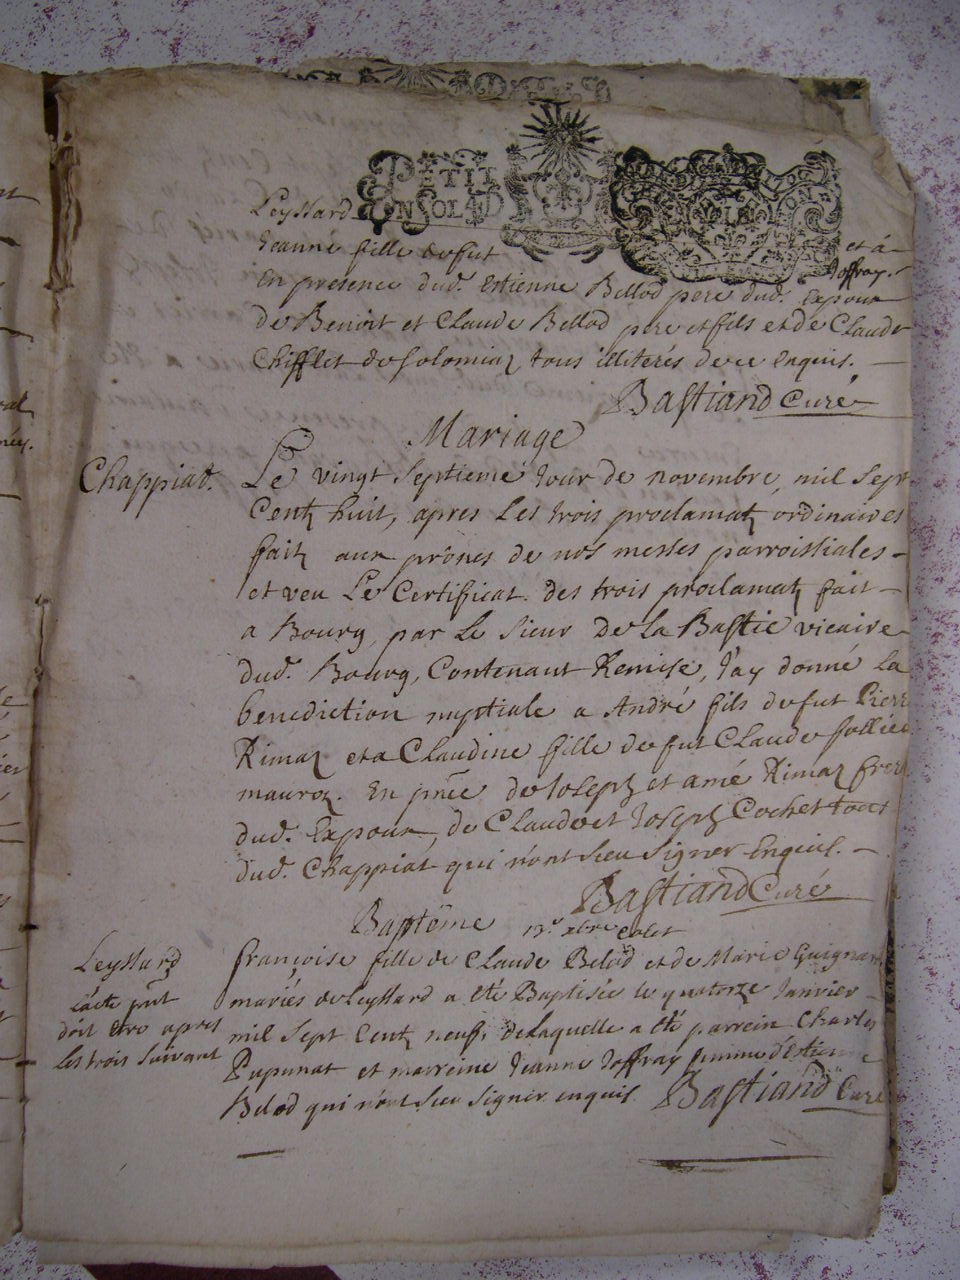 PETIT
EN SOLED
Leyssard
Jeanne fille de fut et à
Joffray.
En presence dud. Estienne Bellod pere dud. Expoux
de Benoit et Claude Bellod pere et fils et de Claude
Chifflet de Solomiaz tous illiterés de ce enquis.
Bastiand Curé
Mariage
Chappiat.
Le vingt septieme Jour de novembre, mil sept
Centz huit, apres Les trois proclamatz ordinaires
faitz aux prônes de nos messes parroissiales
et veu Le Certificat. des trois proclamatz fait
a Bourg, par Le Sieur De la Bastie vicaire
dud. Bourg, Contenant Remise, J'ay donné La
benediction nuptiale a André fils de fut Pierre
Rimaz et a Claudine fille de fut Claude
mauroz. En pñce de Joseph et amé Rimaz freres
dud. Expoux, de Claude et Joseph Cochet tous
dud. Chappiat qui n'ont sceu signer Enquis.
Bastiand Curé
Baptême
13.e xbre
Leyssard
L'acte pñt
doit être apres
les trois suivant
françoise fille de Claude Belod et de Marie Guignard
mariés de Leyssard a été Baptisée le quatorze Janvier
mil sept Centz neuf, de Laquelle a été parrein Charles
Pupunat et marreine Jeanne Joffray femme d'Estienne
Belod qui n'ont sceu signer enquis. Bastiand Curé